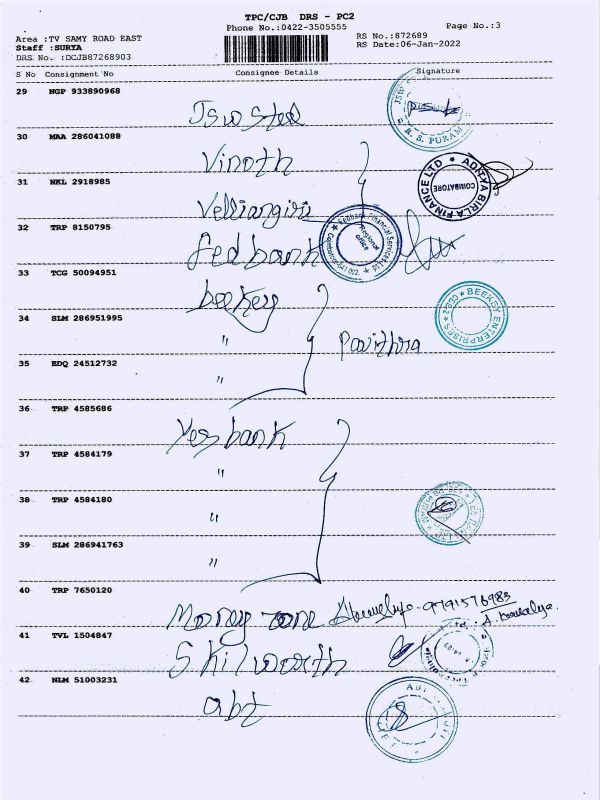 TPC/CJB DRS - PC2
Phone No.:0422-3505555
Page No.:3
Area :TV SAMY ROAD EAST
RS No.:872689
Staff :SURYA
RS Date:06-Jan-2022
DRS No. :DCJB87268903
S No Consignment No Consignee Details Signature
29 NGP 933890968
Jsw Steel
JSW
R. S. PURAM
30 MAA 286041088
Vinoth
ADITYA BIRLA FINANCE LTD
COIMBATORE
31 NKL 2918985
Velliangiri
32 TRP 8150795
Fedbank
Fedbank Financial Services Ltd
Regional Office
Coimbatore-641 002
33 TCG 50094951
beeksy
BEEKSY ENTERPRISES
34 SLM 286951995
"
Pavithra
35 EDQ 24512732
"
36 TRP 4585686
Yes bank
37 TRP 4584179
"
38 TRP 4584180
"
39 SLM 286941763
"
40 TRP 7650120
Money zone
9791576983
41 TVL 1504847
Skilworth
42 NLM 51003231
abt